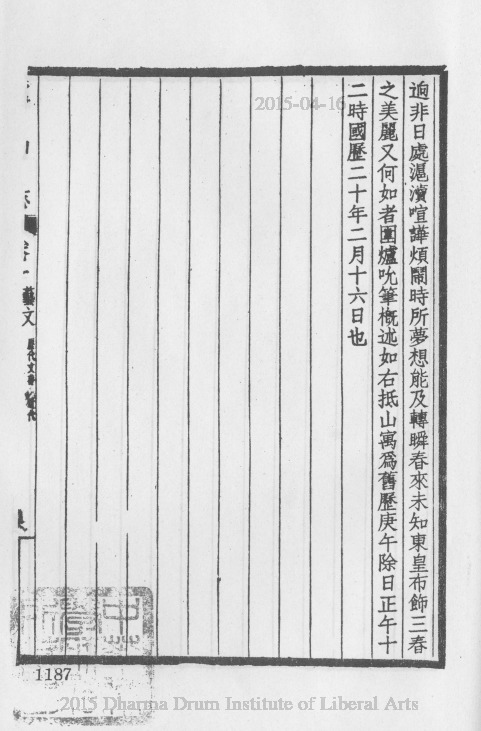 迥非日處滬瀆喧譁煩鬧時所夢想能及轉瞬春來未知東皇布飾三春
之美麗又何如者圍爐吮筆概述如右抵山寓爲舊歷庚午除日正午十
二時國歷二十年二月十六日也
藝文
2015-04-16
1187
2015 Dharma Drum Institute of Liberal Arts